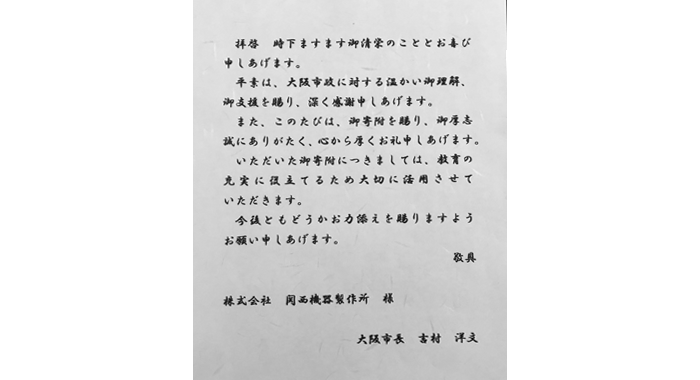 拝啓　時下ますます御清栄のこととお喜び
申しあげます。
平素は、大阪市政に対する温かい御理解、
御支援を賜り、深く感謝申しあげます。
また、このたびは、御寄附を賜り、御厚志
誠にありがたく、心から厚くお礼申しあげます。
いただいた御寄附につきましては、教育の
充実に役立てるため大切に活用させて
いただきます。
今後ともどうかお力添えを賜りますよう
お願い申しあげます。
敬具
株式会社　関西機器製作所　様
大阪市長　吉村　洋文